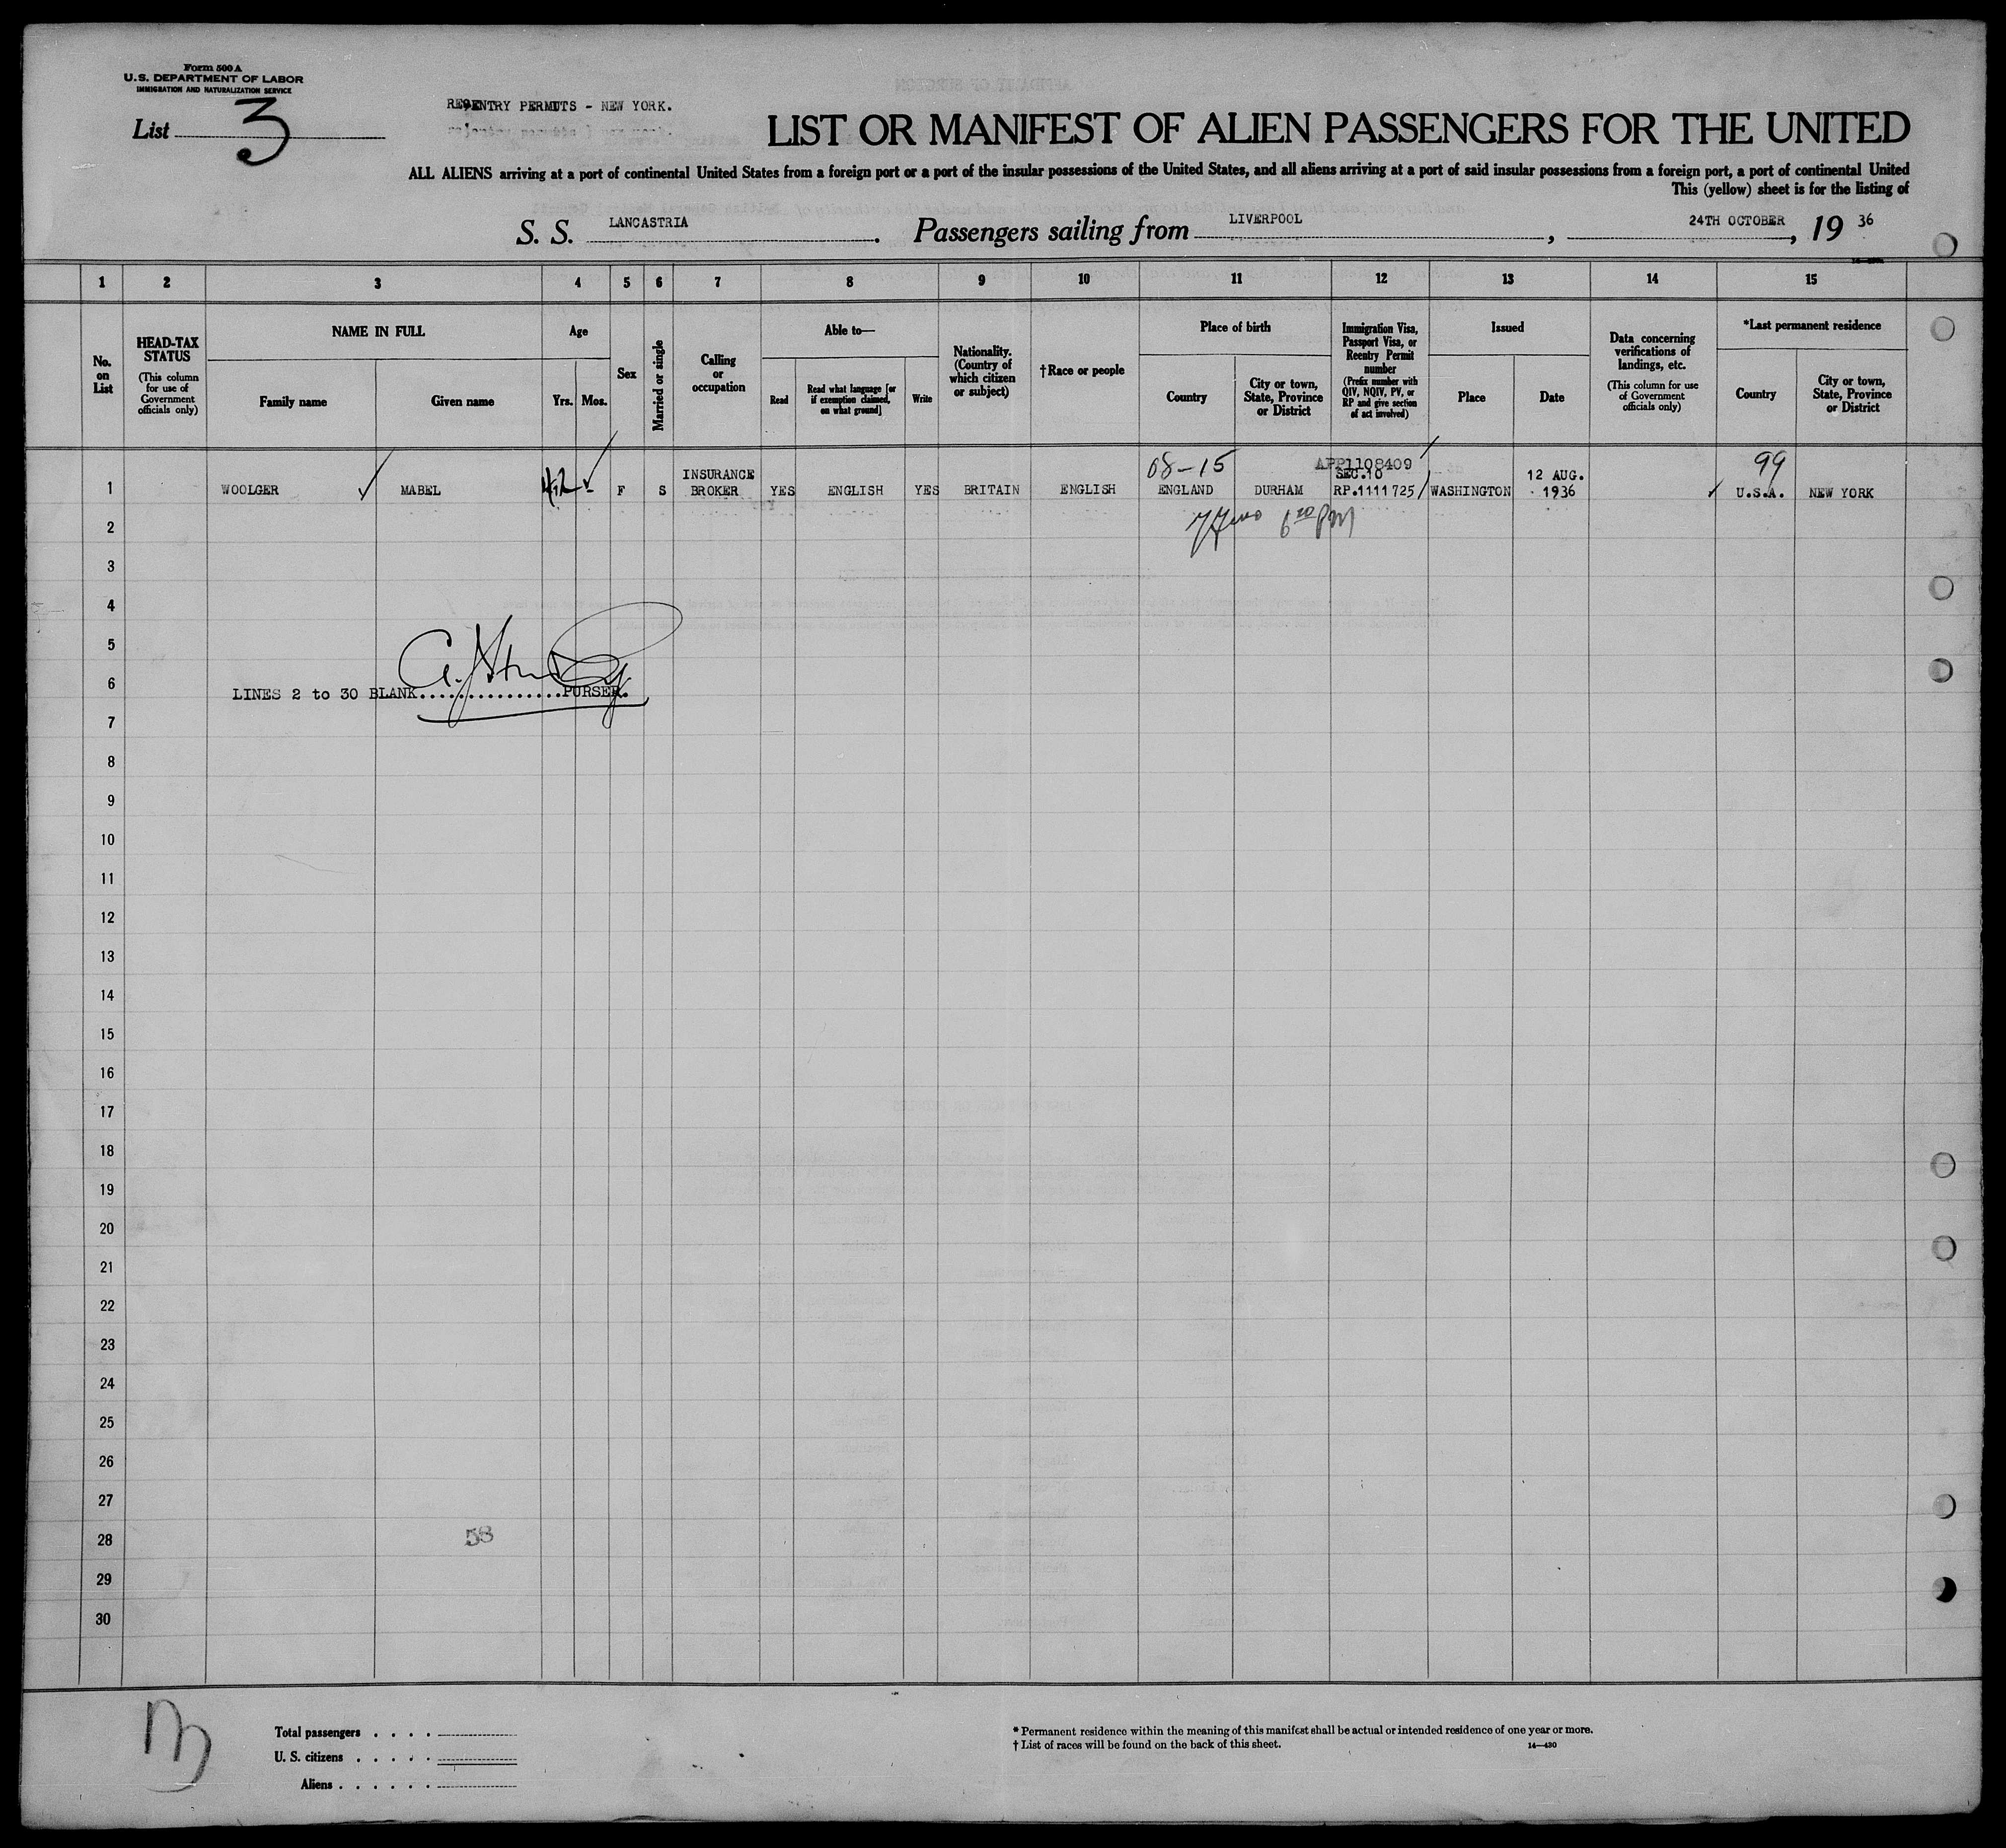 Form 500 A
U.S. DEPARTMENT OF LABOR
IMMIGRATION AND NATURALIZATION SERVICE
List 3
REENTRY PERMITS - NEW YORK.
LIST OR MANIFEST OF ALIEN PASSENGERS FOR THE UNITED
ALL ALIENS arriving at a port of continental United States from a foreign port or a port of the insular possessions of the United States, and all aliens arriving at a port of said insular possessions from a foreign port, a port of continental United
This (yellow) sheet is for the listing of
S. S. LANCASTRIA. Passengers sailing from LIVERPOOL, 24TH OCTOBER, 19 36
1 2 3 4 5 6 7 8 9 10 11 12 13 14 15
No. on List
HEAD-TAX STATUS
(This column for use of Government officials only)
NAME IN FULL
Family name
Given name
Age
Yrs. Mos.
Sex
Married or single
Calling or occupation
Able to—
Read
Read what language [or if exemption claimed, on what ground]
Write
Nationality. (Country of which citizen or subject)
†Race or people
Place of birth
Country
City or town, State, Province or District
Immigration Visa, Passport Visa, or Reentry Permit number
(Prefix number with QIV, NQIV, PV, or RP and give section of act involved)
Issued
Place
Date
Data concerning verifications of landings, etc.
(This column for use of Government officials only)
*Last permanent residence
Country
City or town, State, Province or District
08-15 APP1108409 99
INSURANCE SEC.10 12 AUG.
1 WOOLGER MABEL 42 F S BROKER YES ENGLISH YES BRITAIN ENGLISH ENGLAND DURHAM RP.1111725 WASHINGTON 1936 U.S.A. NEW YORK
2
3
4
5
6
LINES 2 to 30 BLANK................PURSER.
7
8
9
10
11
12
13
14
15
16
17
18
19
20
21
22
23
24
25
26
27
28
58
29
30
Total passengers . . . .
U. S. citizens . . . . .
Aliens . . . . . .
* Permanent residence within the meaning of this manifest shall be actual or intended residence of one year or more.
† List of races will be found on the back of this sheet.
14—430